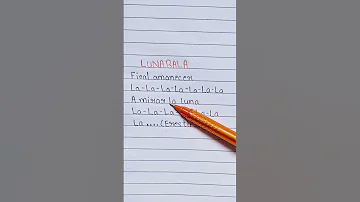 LUNABALA
Final amanecer
La-La-La-La-La-La-La
A mirar la luna
La-La-La La-La
La....(Eres